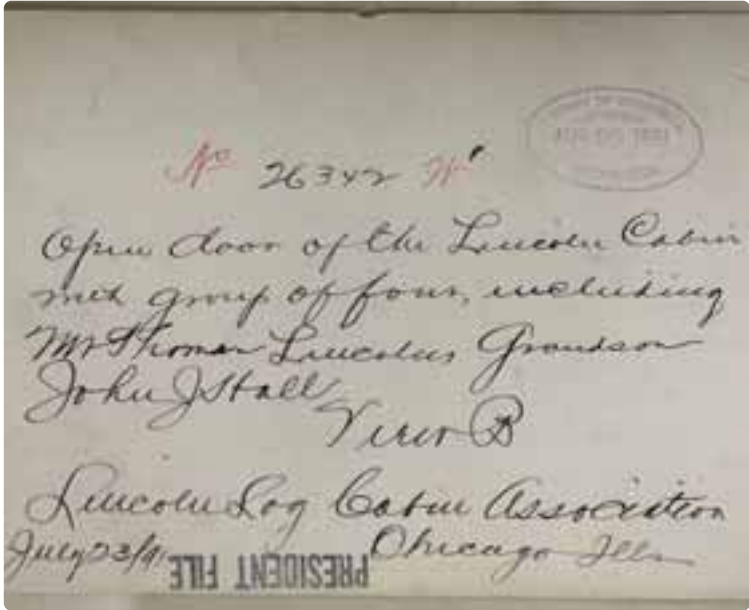 No 26342 W'
AUG 1891
Open door of the Lincoln Cabin
with group of four, including
Mr Thomas Lincolns Grandson
John J Hall
View B
Lincoln Log Cabin Association
July 23/91 Chicago Ills
PRESIDENT FILE